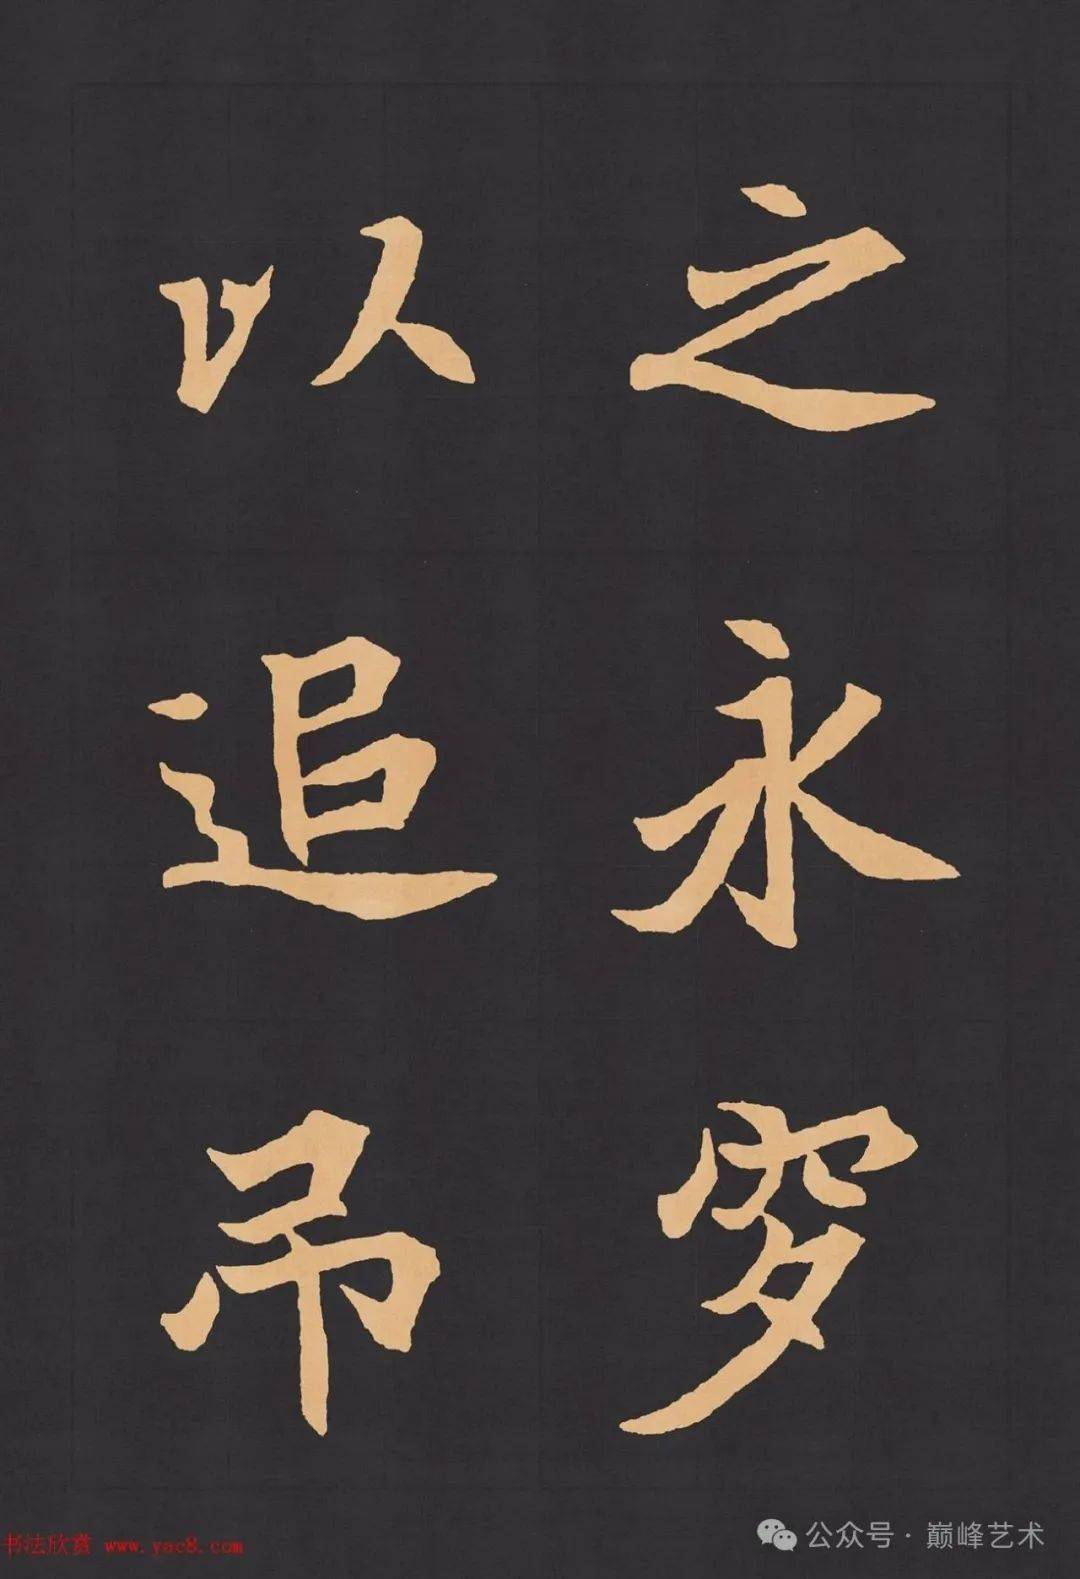 之永穸
以追吊
书法欣赏 www.yac8.com
公众号 · 巅峰艺术